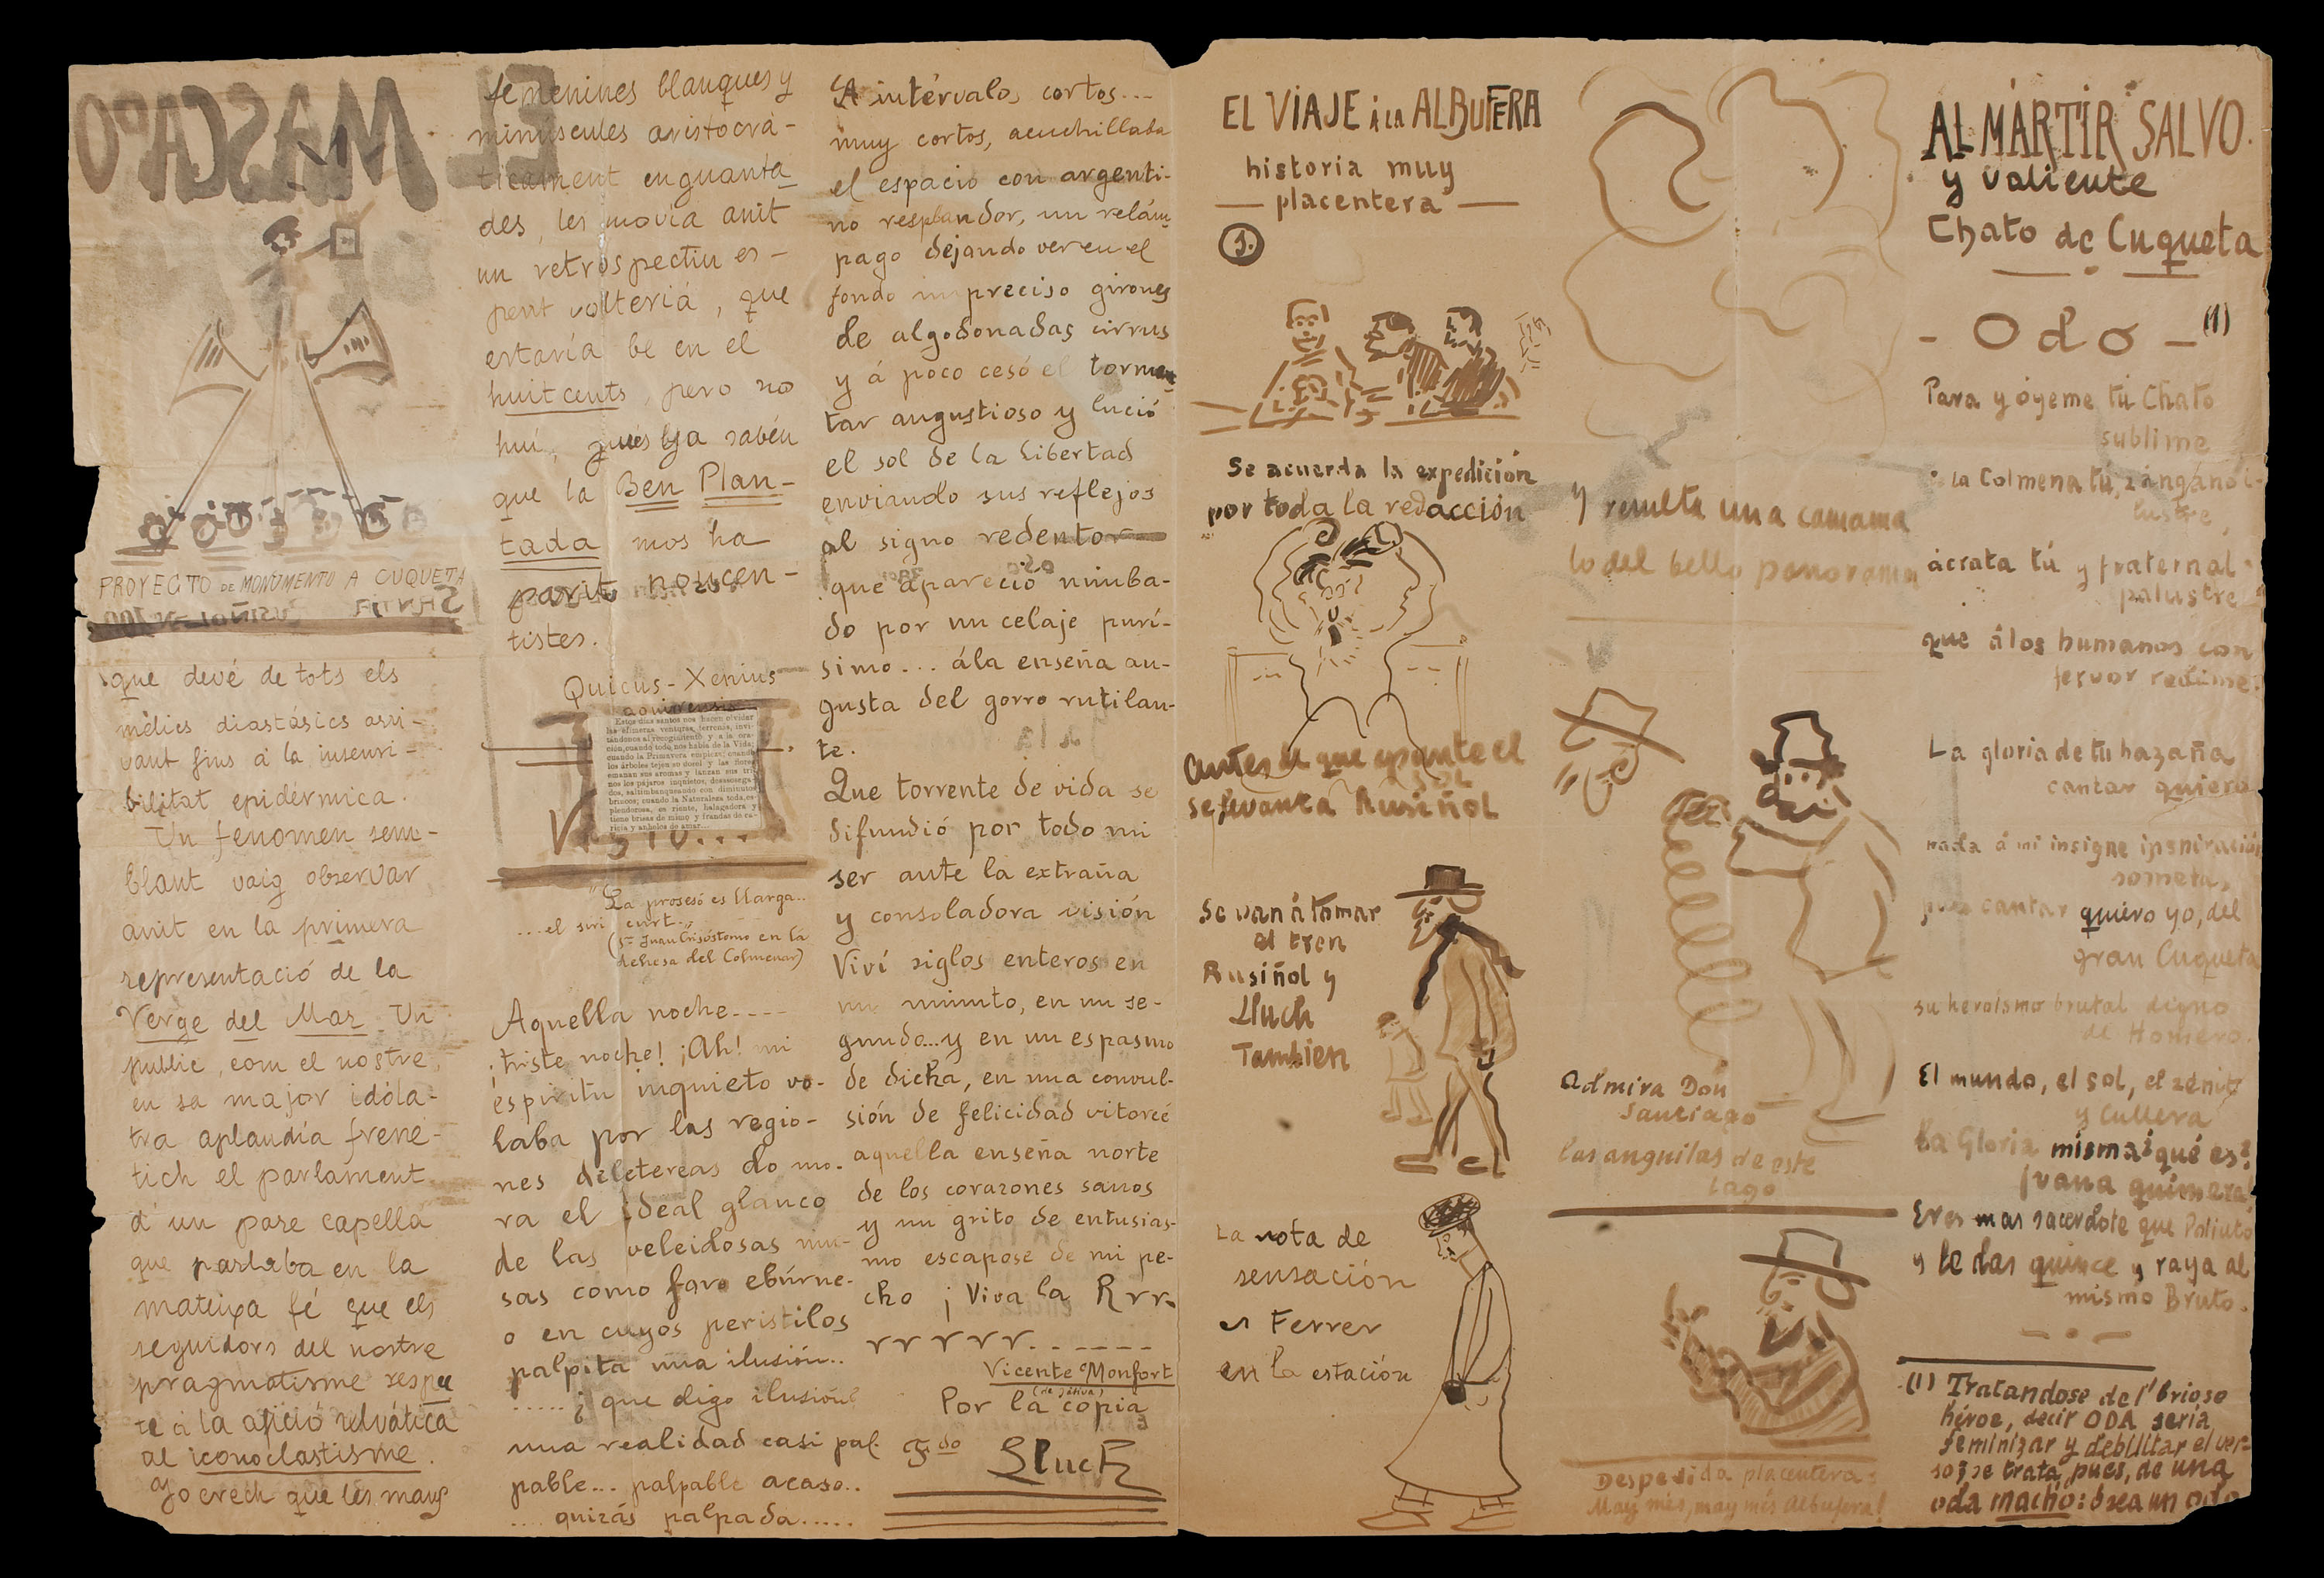 PROYECTO DE MONUMENTO A CUQUETA
que devé de tots els
mèlics diastàsics arri-
vant fins á la insensi-
bilitat epidérmica.
Un fenomen sem-
blant vaig observar
anit en la primera
representació de la
Verge del Mar. Un
public, com el nostre,
en sa major idóla-
tra aplaudía frené-
tich el parlament
d'un pare capellá
que parlaba en la
mateixa fé que els
seguidors del nostre
pragmatisme respec
te á la afició selvática
al iconoclastisme.
Yo crech que les mans
femenines blanques y
minuscules aristocrá-
ticament enguanta
des, les movía anit
un retrospectiu es-
perit volteriá, que
estaría be en el
huitcents, pero no
hui, pues ya sabén
que la Ben Plan-
tada mos ha
parit noucen-
tistes.
Quicus-Xenius
aquirensis
Estos días santos nos hacen olvidar
las efímeras venturas terrenas, invi-
tándonos al recogimiento y a la ora-
ción, cuando todo nos habla de la Vida;
cuando la Primavera empieza; cuando
los árboles tejen su dosel y las flores
emanan sus aromas y lanzan sus tri-
nos los pájaros inquietos, desasosega-
dos, saltimbanqueando con diminutos
brincos; cuando la Naturaleza toda, es-
plendorosa, es riente, halagadora y
tiene brisas de mimo y frandas de ca-
ricia y anhelos de amar...
"La prosesó es llarga..
...el siri curt.."
(Sn Juan Crisóstomo en la
dehesa del Colmenar)
Aquella noche....
¡triste noche! ¡Ah! mi
espiritu inquieto vo-
laba por las regio-
nes deletereas do mo-
ra el ideal glauco
de las veleidosas mu-
sas como faro ebúrne-
o en cuyos peristilos
palpita una ilusión..
.....¿que digo ilusión?
una realidad casi pal-
pable... palpable acaso..
.... quizás palpada.....
A intérvalos cortos...
muy cortos, acuchillada
el espacio con argenti-
no resplandor, un relám
pago dejando ver en el
fondo impreciso girones
de algodonadas cirrus
y á poco cesó el tormen
tar angustioso y lució
el sol de la libertad
enviando sus reflejos
al signo redentor
que apareció nimba-
do por un celaje purí-
simo... á la enseña au-
gusta del gorro rutilan-
te.
Que torrente de vida se
difundió por todo mi
ser ante la extraña
y consoladora visión
Viví siglos enteros en
un minuto, en un se-
gundo...y en un espasmo
de dicha, en una convul-
sión de felicidad vitoreé
aquella enseña norte
de los corazones sanos
y un grito de entusias-
mo escapose de mi pe-
cho ¡Viva la Rrr-
rrrrr......
Vicente Monfort
(de Játiva)
Por la copia
Fdo
Lluch
EL VIAJE Á LA ALBUFERA
historia muy
— placentera —
1.
Se acuerda la expedición
por toda la redacción
Antes de que apunte el
sol
se levanta Rusiñol
Se van á tomar
el tren
Rusiñol y
Lluch
Tambien
La nota de
sensación
es Ferrer
en la estación
Y resulta una camama
lo del bello panorama
Admira Don
Santiago
las anguilas de este
lago
Despedida placentera:
¡May mes, may més Albufera!
AL MÁRTIR SALVO.
y valiente
Chato de Cuqueta
- Odo - (1)
Para y óyeme tú Chato
sublime
La Colmena tú, zángano i-
lustre,
ácrata tú y fraternal
palustre
que á los humanos con
fervor redime.
La gloria de tu hazaña
cantar quiero
nada á mi insigne inspiración
someta,
pues cantar quiero yo, del
gran Cuqueta
su heroísmo brutal digno
de Homero.
El mundo, el sol, el zénit
y Cullera
La Gloria misma ¿qué es?
¡vana quimera!
Eres mas sacerdote que Poliuto
y le das quince y raya al
mismo Bruto.
(1) Tratandose del brioso
héroe, decir ODA sería
feminizar y debilitar el ver-
so; se trata, pues, de una
oda macho: ósea un odo